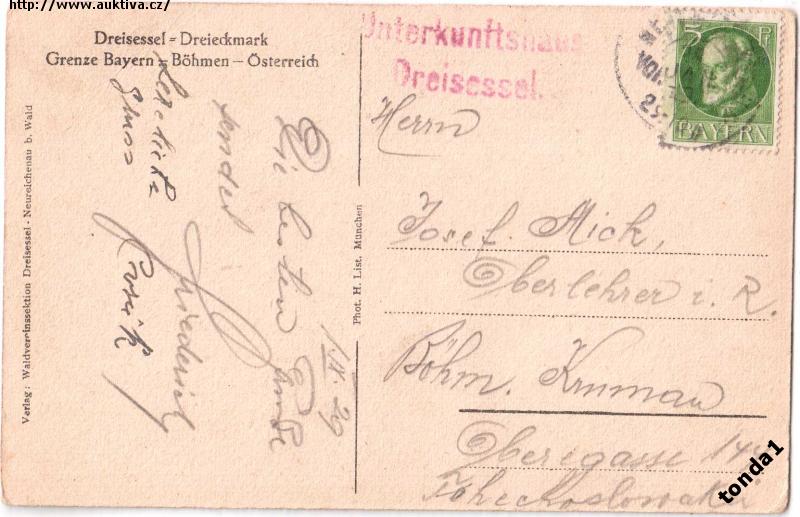 http://www.auktiva.cz/
Dreisessel = Dreieckmark
Grenze Bayern = Böhmen – Österreich
Unterkunftshaus
Dreisessel.
5 Pf
BAYERN
Herrn
Josef Mick,
Oberlehrer i. R.
Böhm. Krummau
Obere Gasse 144
Tschechoslowakei
1. IX. 29
Die besten Grüße
sendet
Friederich
Verlag: Waldvereinssektion Dreisessel - Neureichenau b. Wald
Phot. H. List, München
tonda1